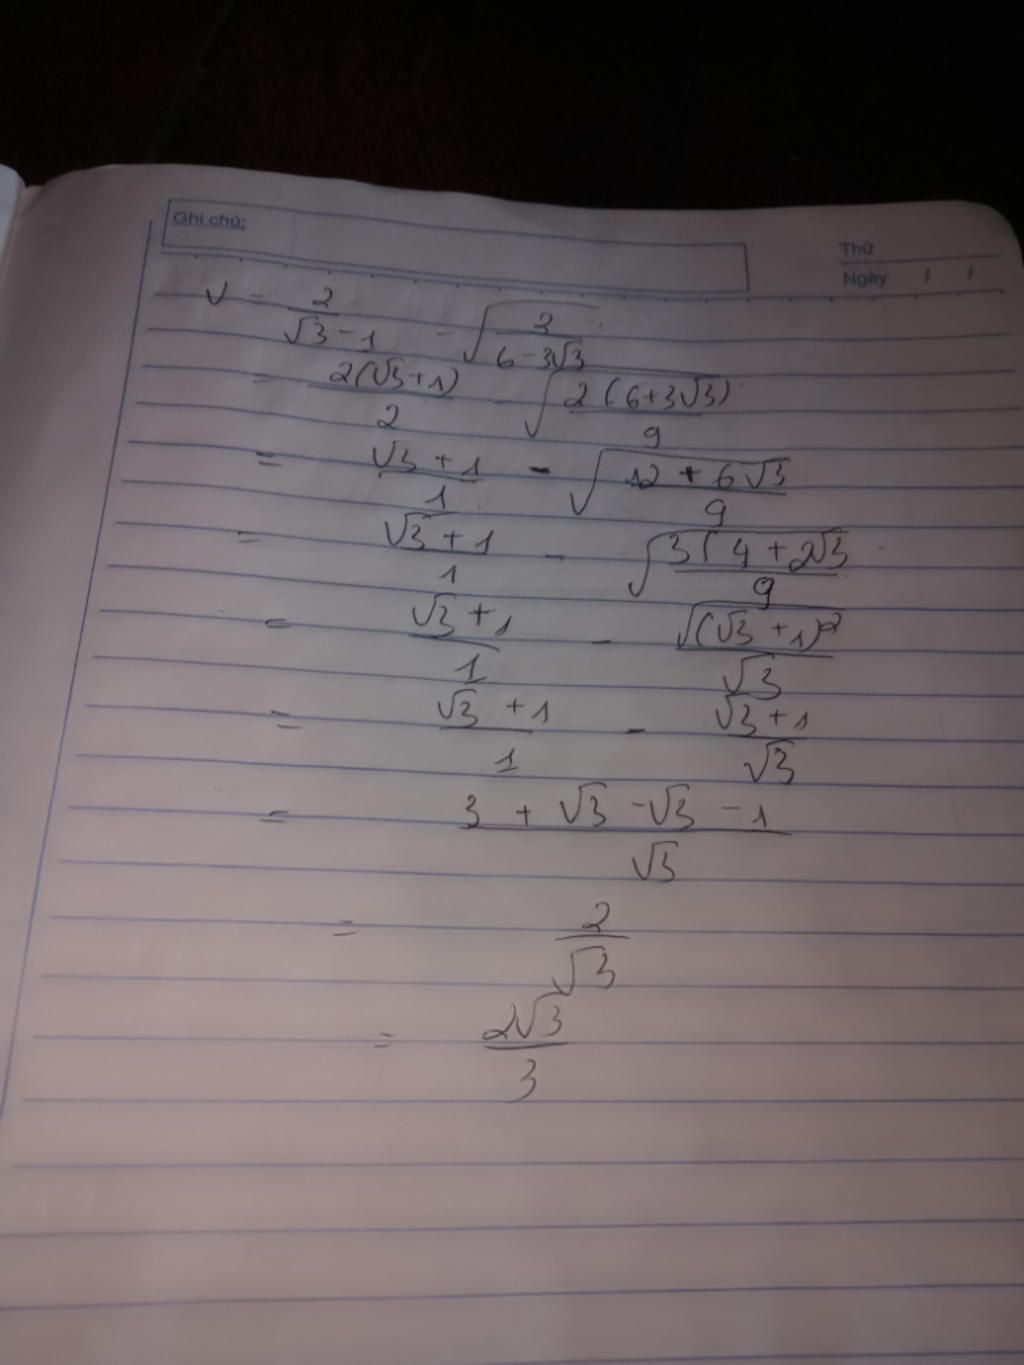 Ghi chú:
Thứ
Ngày / /
V = 2/(√3 - 1) - √(2/(6 - 3√3))
= 2(√3 + 1)/2 - √(2(6 + 3√3)/9)
= (√3 + 1)/1 - √((12 + 6√3)/9)
= (√3 + 1)/1 - √(3(4 + 2√3/9)
= (√3 + 1)/1 - √(√3 + 1)²/√3
= (√3 + 1)/1 - (√3 + 1)/√3
= (3 + √3 - √3 - 1)/√3
= 2/√3
= 2√3/3